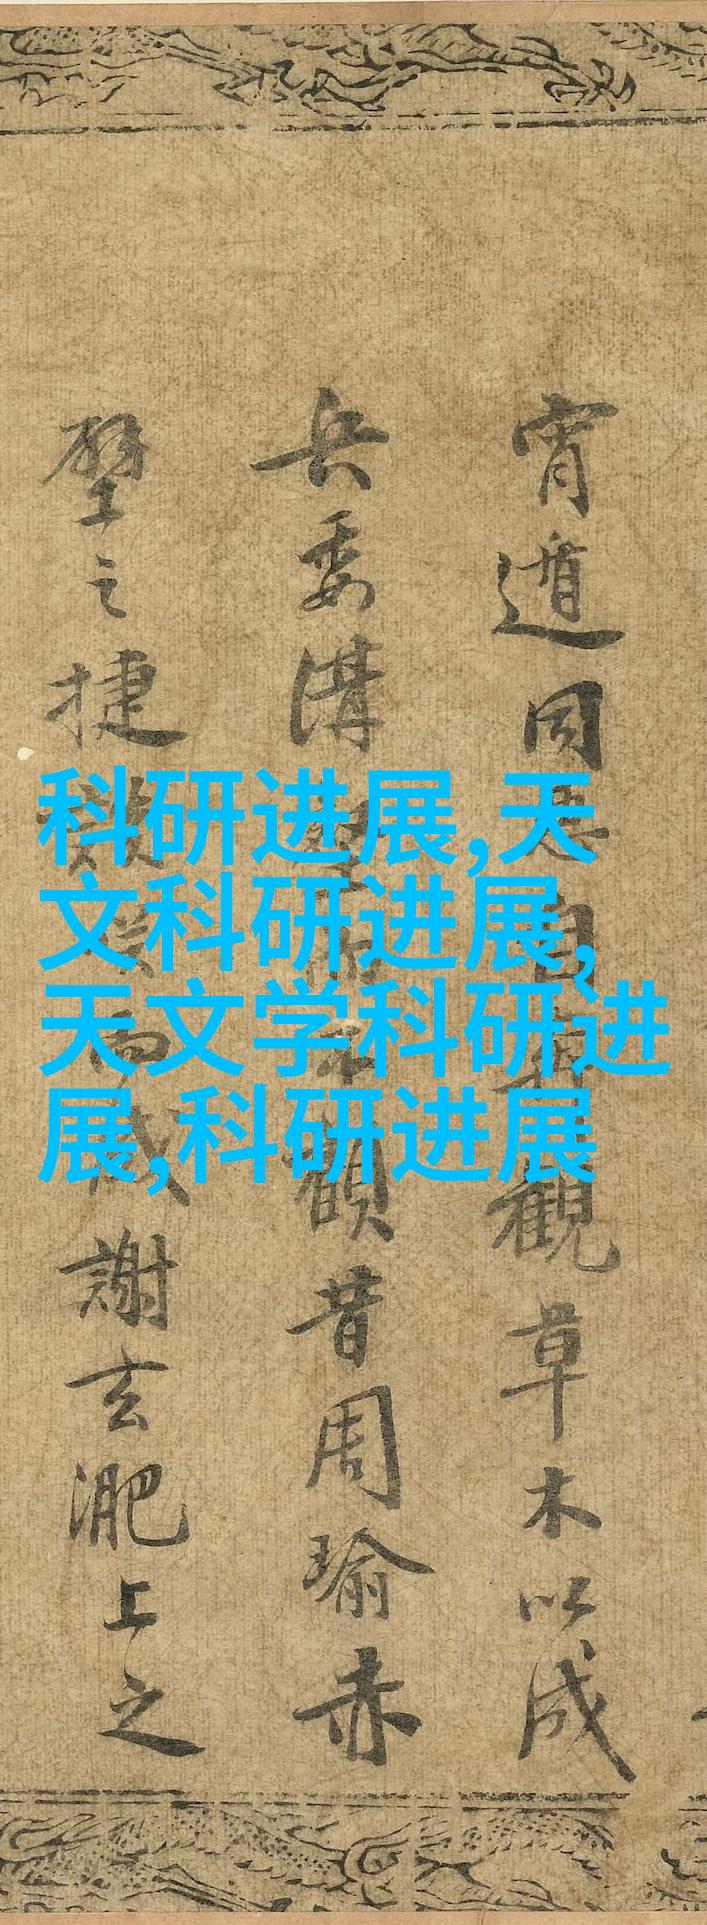 科研进展,天
文科研进展,
天文学科研进
展,科研进展
宵遁同惡自觀草木以成
兵委溝壑不顧昔周瑜赤
壁之捷談笑而成謝玄淝上之